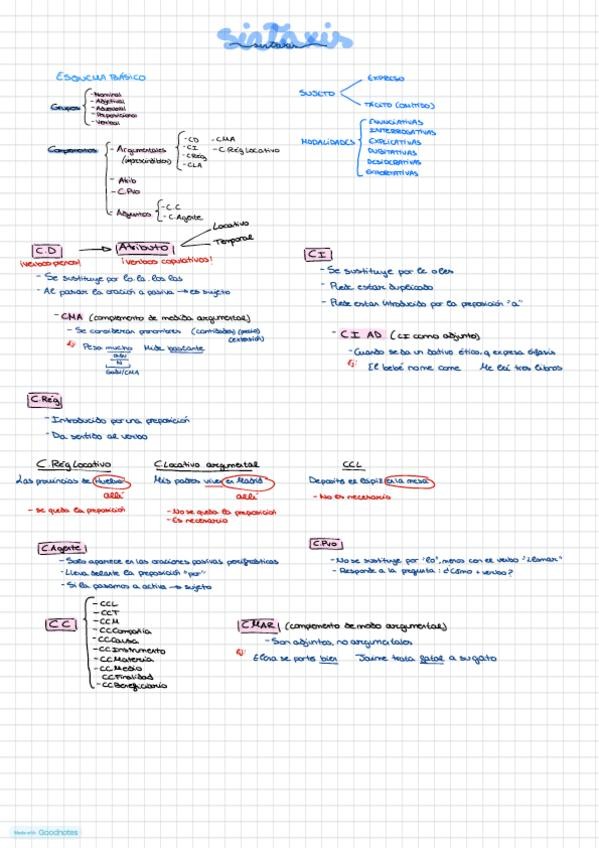 sintaxis
sintaxis
ESQUEMA BÁSICO
Grupos
- Nominal
- Adjetival
- Adverbial
- Preposicional
- Verbal
SUJETO
EXPRESO
TÁCITO (OMITIDO)
MODALIDADES
ENUNCIATIVAS
INTERROGATIVAS
EXPLICATIVAS
DUBITATIVAS
DESIDERATIVAS
EXHORTATIVAS
Componentes
- Argumentales (imprescindibles)
- CD
- CI
- CRég
- CLA
- CMA
- C.Rég Locativo
- Atrib
- C.Pvo
- Adjuntos
- C.C
- C.Agente
C.D
¡verbos plenos!
Atributo
¡verbos copulativos!
Locativo
Temporal
- Se sustituye por lo, la, los, las
- Al pasar la oración a pasiva → es sujeto
- CMA (complemento de medida argumental)
- Se consideran pronombres (cantidades) (precio) (extensión)
Ej: Pesa mucho Mide bastante
N
GAdv/CMA
CI
- Se sustituye por le o les
- Puede estar duplicado
- Puede estar introducido por la preposición "a"
- CI AD (CI como adjunto)
- Cuando se da un dativo ético, q expresa énfasis
Ej: El bebé no me come Me leí tres libros
C.Rég
- Introducido por una preposición
- Da sentido al verbo
C.Rég Locativo
Las provincias de Huelva
allí
- se queda la preposición
C.Locativo argumental
Mis padres viven en Madrid
allí
- No se queda la preposición
- Es necesario
CCL
Deposito el lápiz en la mesa
- No es necesario
C.Agente
- Solo aparece en las oraciones pasivas perifrásticas
- Lleva delante la preposición "por"
- Si la pasamos a activa → sujeto
C.Pvo
- No se sustituye por "lo", menos con el verbo "llamar"
- Responde a la pregunta: ¿Cómo + verbo?
CC
- CCL
- CCT
- CCM
- CCCompañía
- CCCausa
- CCInstrumento
- CCMateria
- CCMedio
CCFinalidad
- CCBeneficiario
CMAR (complemento de modo argumental)
- Son adjuntos, no argumentales
Ej: Elena se porta bien Jaime trata fatal a su gato
Made with Goodnotes